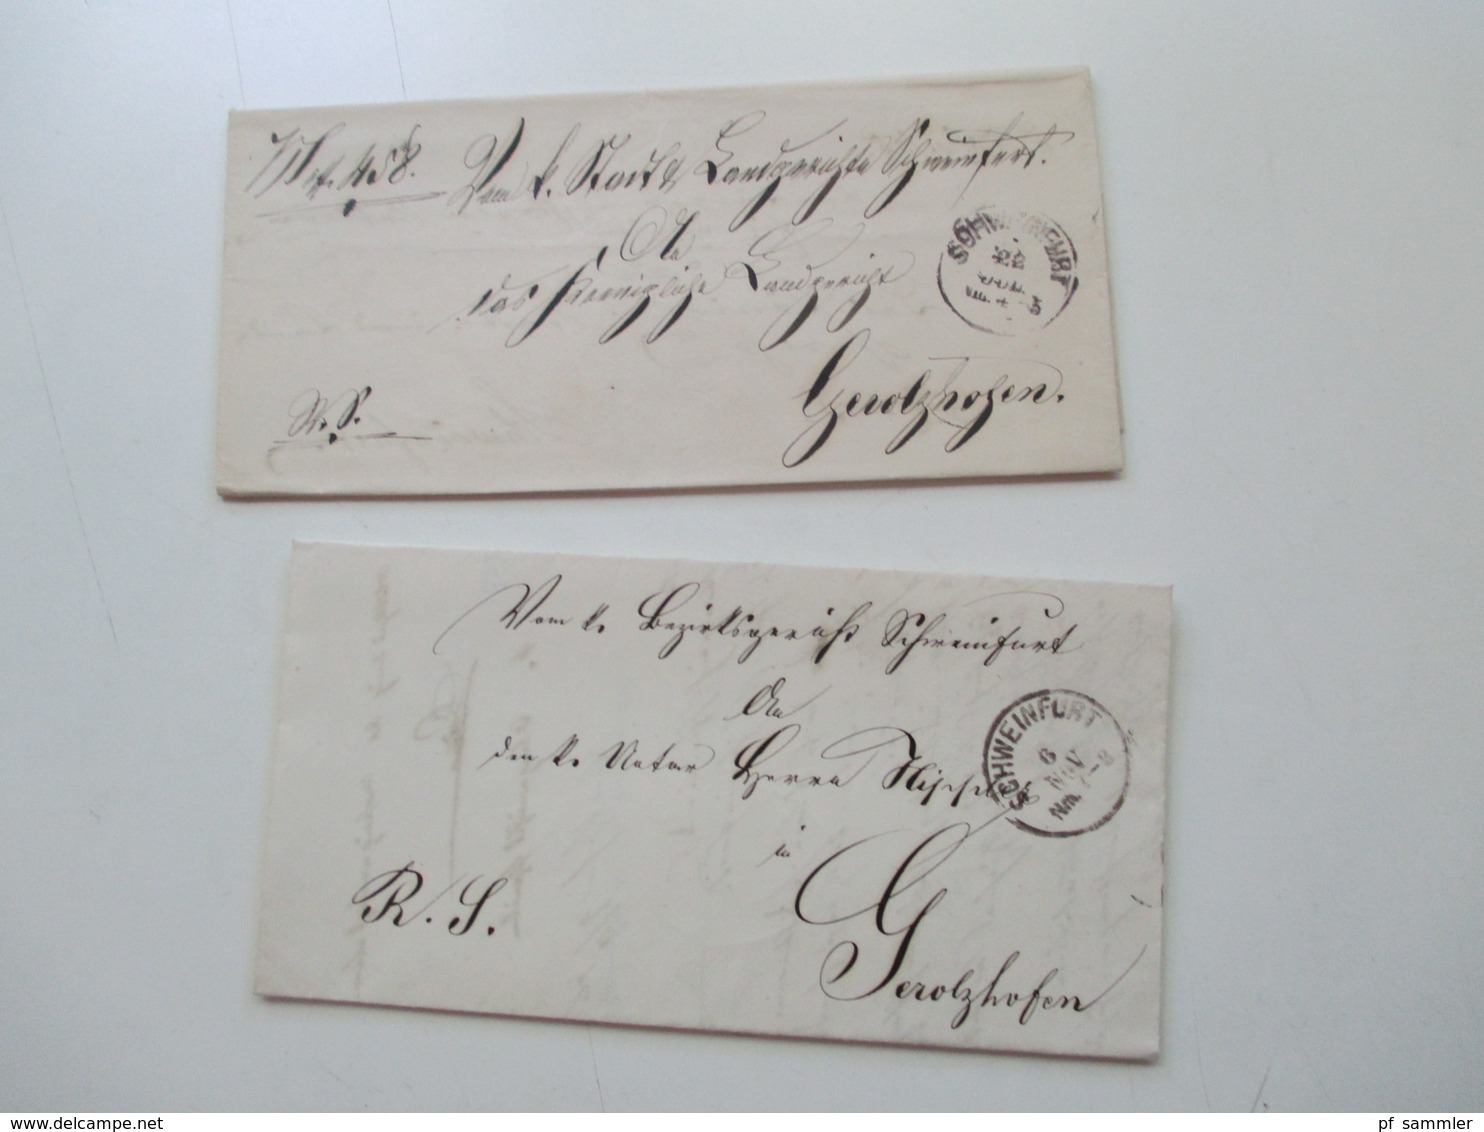 458.
Vom k. Stadt & Landgerichte Schweinfurt.
An
das Koenigliche Landgericht
Gerolzhofen.
R. S.
SCHWEINFURT
Vom k. Bezirksgericht Schweinfurt
An
den k. Notar Herrn
in
Gerolzhofen
R. S.
SCHWEINFURT
6
NOV
Nm. 7-8
www.delcampe.net
pf_sammler